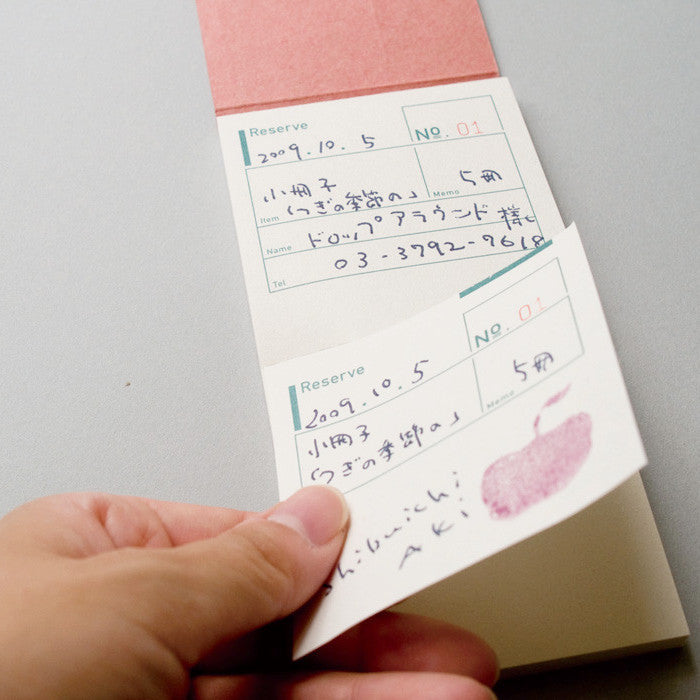 Reserve
No. 01
2009.10.5
小冊子
Item 「つぎの季節の」
Memo 5冊
Name ドロップアラウンド 様
Tel 03-3792-7618
Reserve
No. 01
2009.10.5
小冊子
「つぎの季節の」
Memo 5冊
AKi